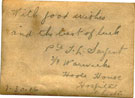 With good wishes
and the best of luck
Pte F. L. Sargent
Warwicks
Hoole House
Hospital